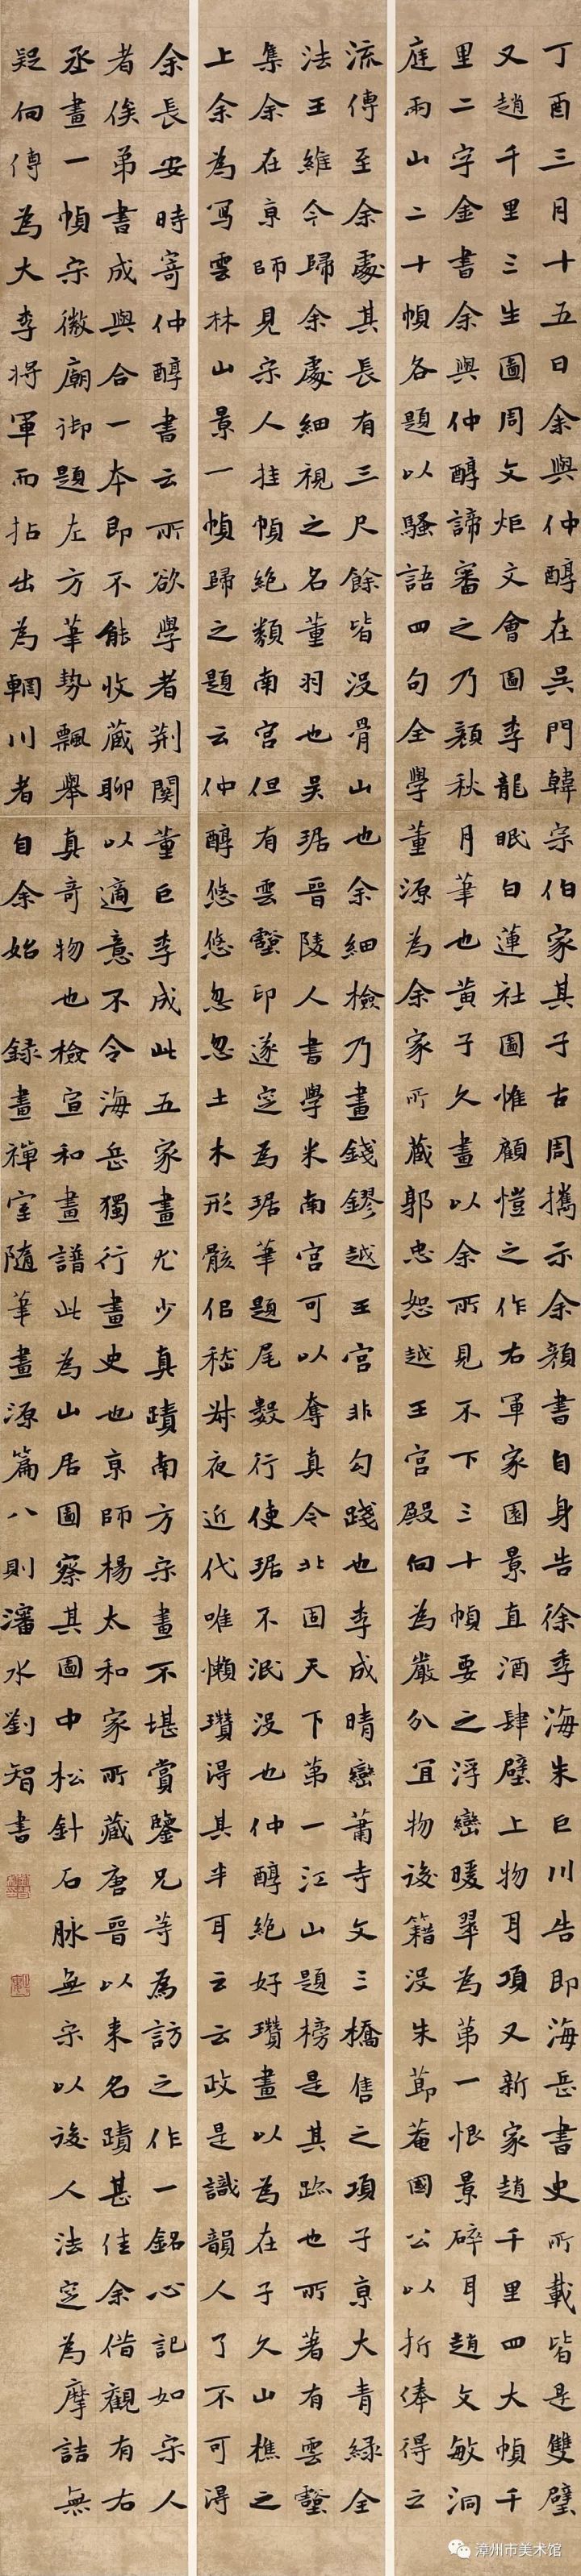 丁酉三月十五日余與仲醇在吳門韓宗伯家其子古周攜示余顏書自身告徐季海朱巨川告即海岳書史所載皆是雙璧
又趙千里三生圖周文炬文會圖李龍眠白蓮社圖惟顧愷之作右軍家園景直酒肆壁上物耳項又新家趙千里四大幀千
里二字金書余與仲醇諦審之乃顏秋月筆也黃子久畫以余所見不下三十幀要之浮巒暖翠為第一恨景碎耳趙文敏洞
庭兩山二十幀各題以騷語四句全學董源為余家所藏郭忠恕越王宮殿向為嚴分宜物後籍沒朱節菴國公以折俸得之
流傳至余處其長有三尺餘皆沒骨山也余細檢乃畫錢鏐越王宮非勾踐也李成晴巒蕭寺文三橋售之項子京大青綠全
法王維今歸余處細視之名董羽也吳琚晉陵人書學米南宮可以奪真今北固天下第一江山題榜是其跡也所著有雲壑
集余在京師見宋人挂幀絕類南宮但有雲壑印遂定為琚筆題尾數行使琚不泯沒也仲醇絕好瓚畫以為在子久山樵之
上余為寫雲林山景一幀歸之題云仲醇悠悠忽忽土木形骸佀嵇叔夜近代唯懶瓚得其半耳云云政是識韻人了不可得
余長安時寄仲醇書云所欲學者荊關董巨李成此五家畫尤少真蹟南方宋畫不堪賞鑒兄等為訪之作一銘心記如宋人
者俟弟書成與合一本即不能收藏聊以適意不令海岳獨行畫史也京師楊太和家所藏唐晉以來名蹟甚佳余借觀有右
丞畫一幀宋徽廟御題左方筆勢飄舉真奇物也檢宣和畫譜此為山居圖察其圖中松針石脉無宋以後人法定為摩詰無
疑向傳為大李將軍而拈出為輞川者自余始 錄畫禪室隨筆畫源篇八則瀋水劉智書
漳州市美术馆